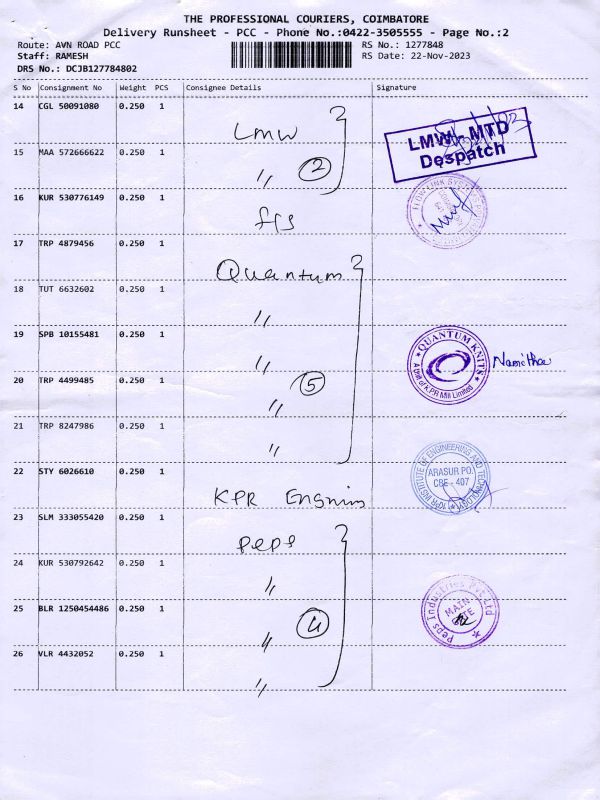 THE PROFESSIONAL COURIERS, COIMBATORE
Delivery Runsheet - PCC - Phone No.:0422-3505555 - Page No.:2
Route: AVN ROAD PCC
RS No.: 1277848
Staff: RAMESH
RS Date: 22-Nov-2023
DRS No.: DCJB127784802
S No Consignment No Weight PCS Consignee Details Signature
14 CGL 50091080 0.250 1
Lmw
LMW - MTD
Despatch
15 MAA 572666622 0.250 1
〃 2
16 KUR 530776149 0.250 1
FLOW LINK SYSTEMS
17 TRP 4879456 0.250 1
Quantum
18 TUT 6632602 0.250 1
〃
19 SPB 10155481 0.250 1
〃
QUANTUM KNITS
A Unit of K.P.R Mill Limited
Namitha
20 TRP 4499485 0.250 1
〃 5
21 TRP 8247986 0.250 1
〃
22 STY 6026610 0.250 1
KPR
KPR INSTITUTE OF ENGINEERING AND TECHNOLOGY
ARASUR PO.
CBE - 407
23 SLM 333055420 0.250 1
Peps
24 KUR 530792642 0.250 1
〃
25 BLR 1250454486 0.250 1
〃 4
Peps Industries Pvt Ltd
MAIN
GATE
26 VLR 4432052 0.250 1
〃